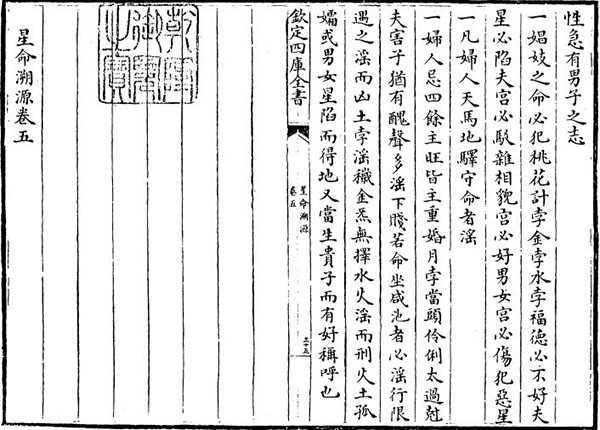 性急有男子之志
一娼妓之命必犯桃花計孛金孛水孛福德必不好夫
星必陷夫宮必駁雜相貌宮必好男女宮必傷犯惡星
一凡婦人天馬地驛守命者淫
一婦人忌四餘主旺皆主重婚月孛當頭伶俐太過尅
夫害子猶有醜聲多淫下賤若命坐咸池者必淫行限
遇之淫而凶土孛淫穢金炁無擇水火淫而刑火土孤
孀或男女星陷而得地又當生貴子而有好稱呼也
欽定四庫全書
星命溯源
卷五
三十五
乾隆御覽之寶
星命溯源卷五